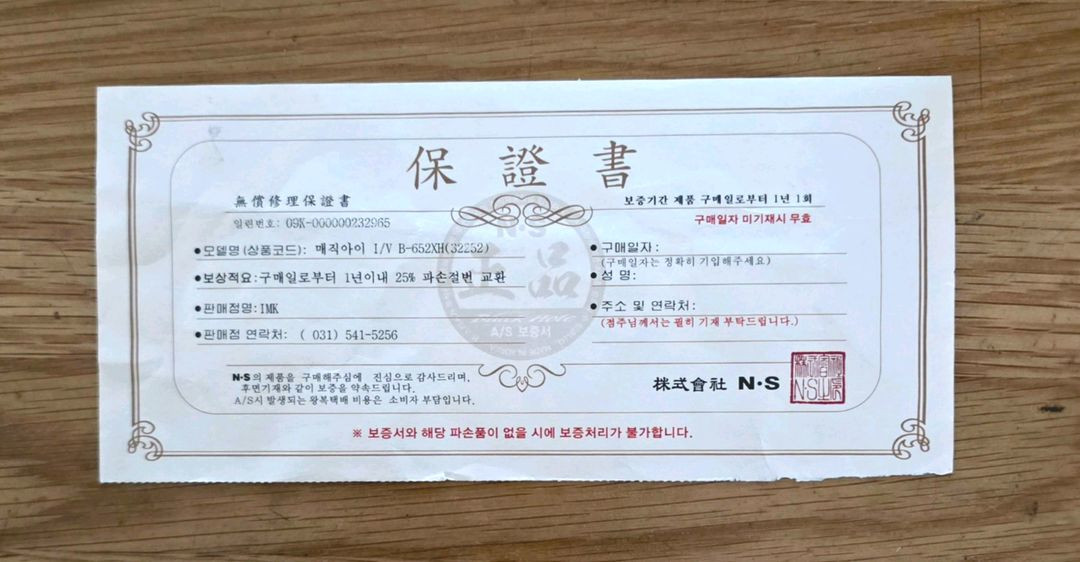 保證書
無償修理保證書
보증기간 제품 구매일로부터 1년 1회
일련번호: 09K-000000232965
구매일자 미기재시 무효
●모델명(상품코드): 매직아이 I/V B-652XH(32252)
●구매일자:
(구매일자는 정확히 기입해주세요)
●보상적요:구매일로부터 1년이내 25% 파손절번 교환
●성 명:
N·S
正品
●판매점명:IMK
●주소 및 연락처:
(점주님께서는 필히 기재 부탁드립니다.)
A/S 보증서
●판매점 연락처: ( 031) 541-5256
N·S의 제품을 구매해주심에 진심으로감사드리며,
후면기재와 같이 보증을 약속드립니다.
A/S시 발생되는 왕복택배 비용은 소비자 부담입니다.
株式會社 N·S
N·S
※ 보증서와 해당 파손품이 없을 시에 보증처리가 불가합니다.